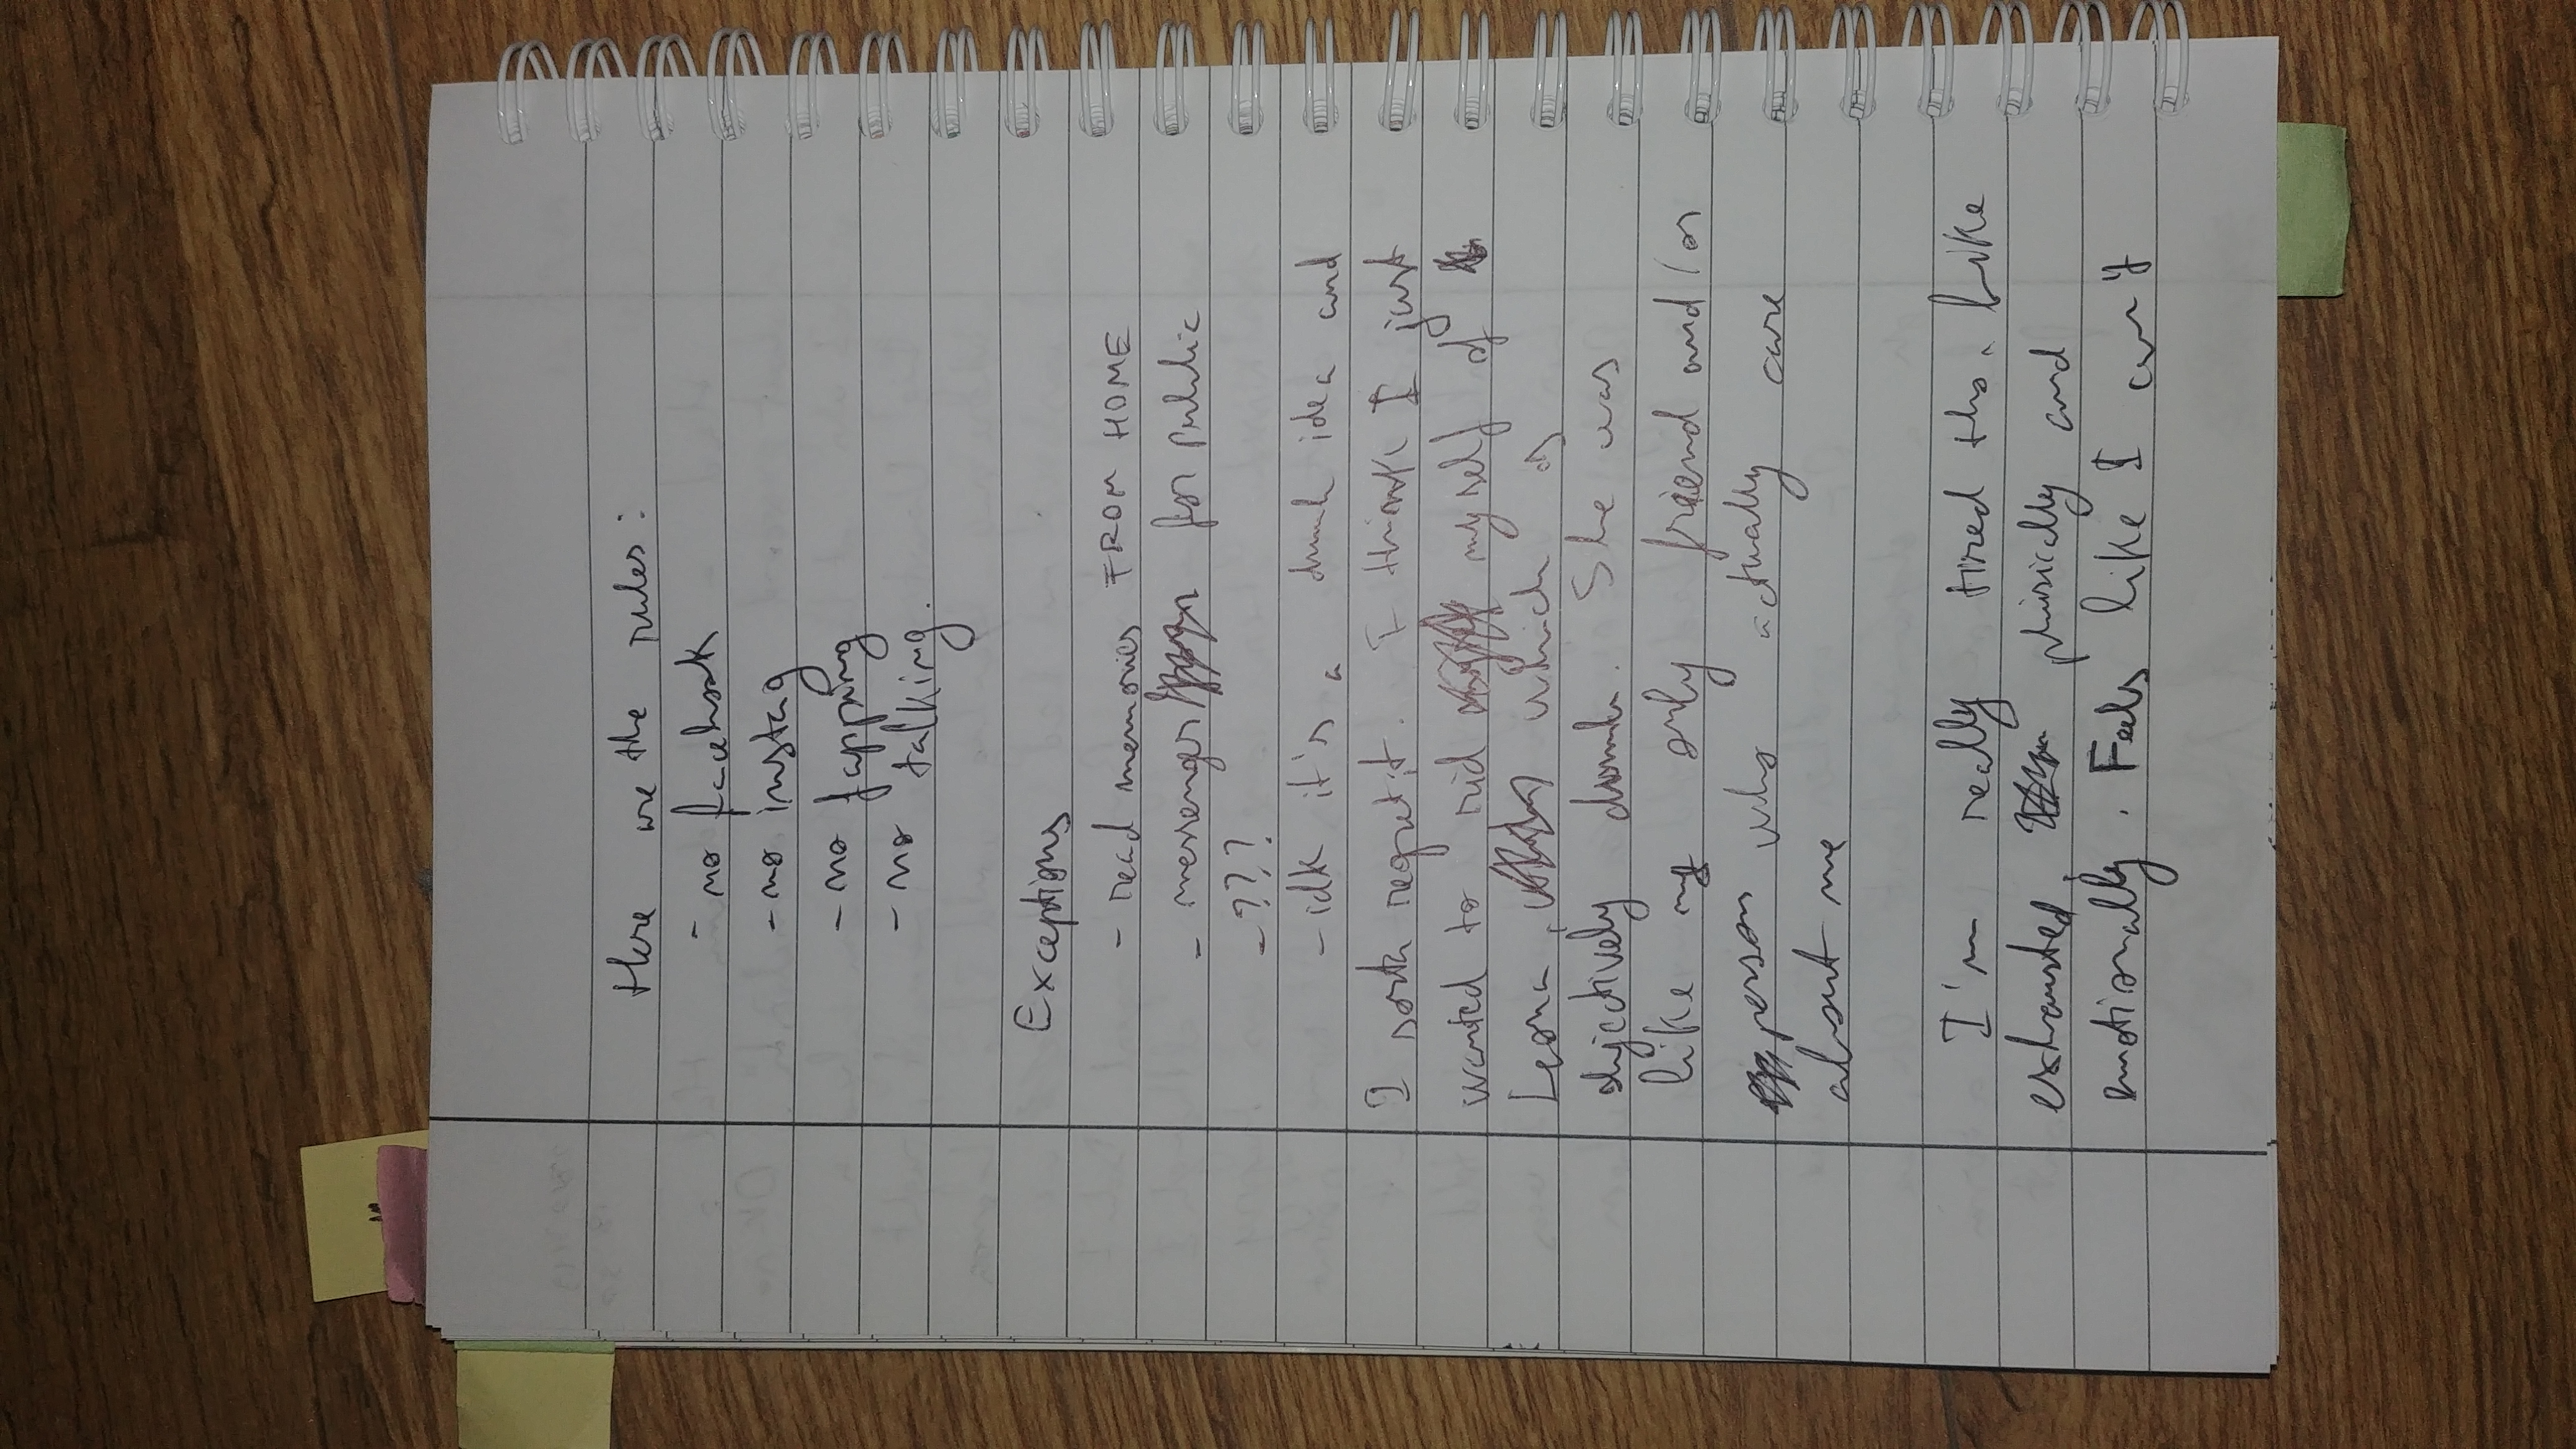 Here are the rules:
- no facebook
- no instag
- no fapping
- no talking.
Exceptions
- read memories FROM HOME
- messenger for public
- ???
- idk it's a dumb idea and
I sorta regret it. I think I just
wanted to rid myself of
Leona, which is
objectively dumb. She was
like my only friend and/or
person who actually care
about me
I'm really tired tho. Like
exhausted, phisically and
emotionally. Feels like I can't